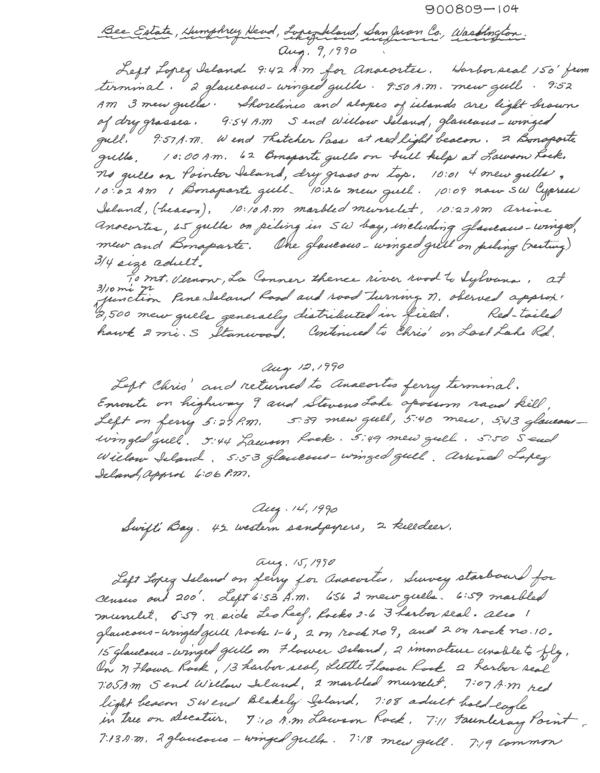 900809-104
Bee Estate, Humphrey Head, Lopez Island, San Juan Co, Washington.
Aug. 9, 1990
Left Lopez Island 9:42 A.M for Anacortes. Harbor seal 150' from
terminal. 2 glaucous-winged gulls. 9:50 A.M. mew gull. 9:52
AM 3 mew gulls. Shorelines and slopes of islands are light brown
of dry grasses. 9:54 A.M S end Willow Island, glaucous-winged
gull. 9:57 A.M. W end Thatcher Pass at red light beacon. 2 Bonaparte
gulls. 10:00 A.M. 62 Bonaparte gulls on bull kelp at Lawson Rock.
No gulls on Pointer Island, dry grass on top. 10:01 4 mew gulls,
10:02 AM 1 Bonaparte gull. 10:26 mew gull. 10:09 now SW Cypress
Island, (beacon), 10:10 A.M marbled murrelet, 10:22 AM Arrive
Anacortes, 65 gulls on piling in SW bay, including glaucous-winged,
mew and Bonaparte. One glaucous-winged gull on piling (nesting)
3/4 size adult.
To Mt. Vernon, La Conner thence river road to Sylvana. At
3/10 mi
junction Pine Island Road and road turning N. oberved approx.
2,500 mew gulls generally distributed in field. Red-tailed
hawk 2 mi. S Stanwood. Continued to Chris' on Lost Lake Rd.
Aug 12, 1990
Left Chris' and returned to Anacortis ferry terminal.
Enroute on highway 9 and Stevens Lake opossum road kill,
Left on ferry 5:27 P.M. 5:39 mew gull, 5:40 mew, 5:43 glaucous-
winged gull. 5:44 Lawson Rock. 5:49 mew gull. 5:50 S end
Willow Island. 5:53 glaucous-winged gull. Arrived Lopez
Island, approx 6:06 P.M.
Aug. 14, 1990
Swifts Bay. 42 western sandpypers, 2 killdeer.
Aug. 15, 1990
Left Lopez Island on ferry for Anacortes. Survey starboard for
census out 200'. Left 6:53 A.M. 656 2 mew gulls. 6:59 marbled
murrelet, 6:59 N. side Leo Reef, Rocks 2-6 3 harbor seal. Also 1
glaucous-winged gull rock 1-6, 2 on rock no 9, and 2 on rock no. 10.
15 glaucous-winged gulls on Flower Island, 2 immature unable to fly.
On N Flower Rock, 13 harbor seal, Little Flower Rock 2 harbor seal
7:05 AM S end Willow Island, 2 marbled murrelet. 7:07 A.M red
light beacon SW end Blakely Island. 7:08 adult bald eagle
in tree on Decatur. 7:10 A.M Lawson Rock. 7:11 Faunleray Point.
7:13 A.M. 2 glaucous-winged gulls. 7:18 mew gull. 7:19 common